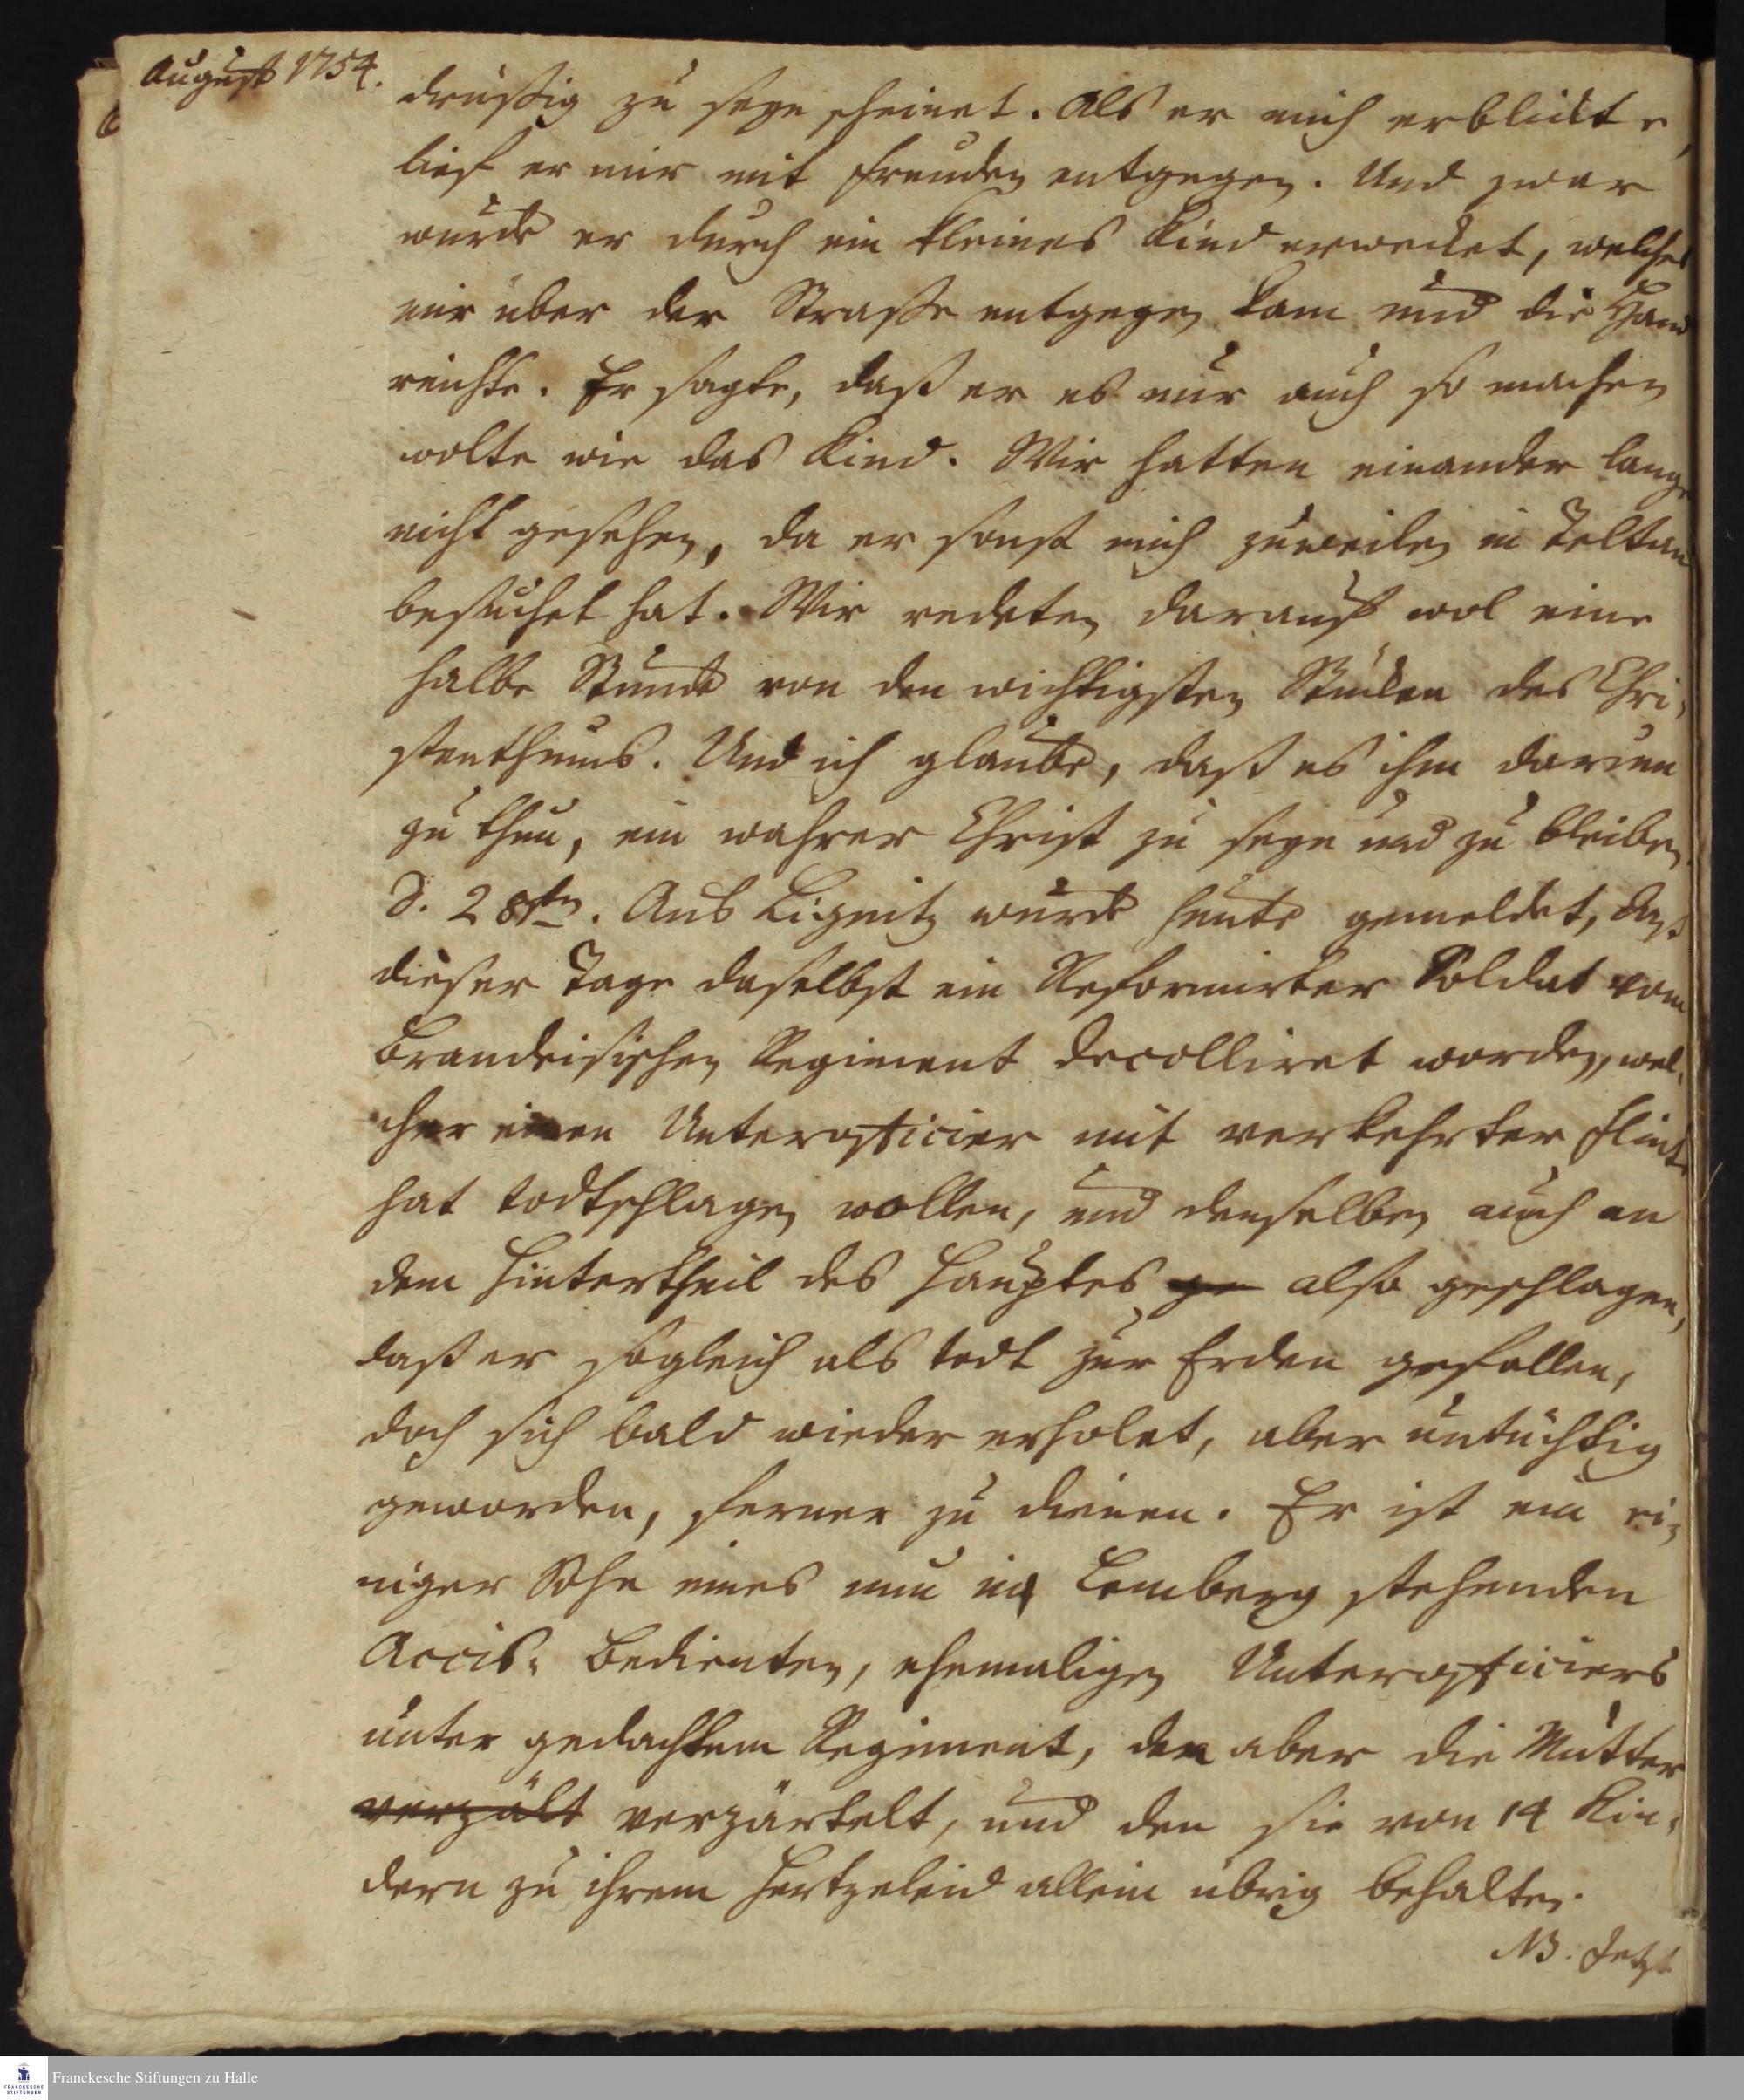 August 1754.
drüßig zu seyn scheinet. Als er mich erblickte,
lief er mir mit Freuden entgegen. Und zwar
wurde er durch ein kleines Kind erwecket, welches
mir über der Straße entgegen kam und die Hand
reichte. Er sagte, daß er es nur auch so machen
wolte wie das Kind. Wir hatten einander lange
nicht gesehen, da er sonst mich zuweilen in Teltau
besuchet hat. Wir redeten darauf wol eine
halbe Stunde von den wichtigsten Stücken des Chri-
stenthums. Und ich glaube, daß es ihm darum
zu thun, ein wahrer Christ zu seyn und zu bleiben.
D. 28sten. Aus Lignitz wurde heute gemeldet, daß
dieser Tage daselbst ein Reformirter Soldat vom
Brandeisischen Regiment decolliret worden, wel-
cher einen Unterofficier mit verkehrter Flinte
hat todtschlagen wollen, und denselben auch an
dem Hintertheil des Hauptes ge also geschlagen,
daß er sogleich als todt zur Erden gefallen,
doch sich bald wieder erholet, aber untüchtig
geworden, ferner zu dienen. Er ist ein ei-
niger Sohn eines nun in Lemberg stehenden
Accis-Bedienten, ehemaligen Unterofficiers
unter gedachtem Regiment, den aber die Mutter
verzält verzärtelt, und den sie von 14 Kin-
dern zu ihrem Hertzeleid allein übrig behalten.
NB. Jetzt
Franckesche Stiftungen zu Halle